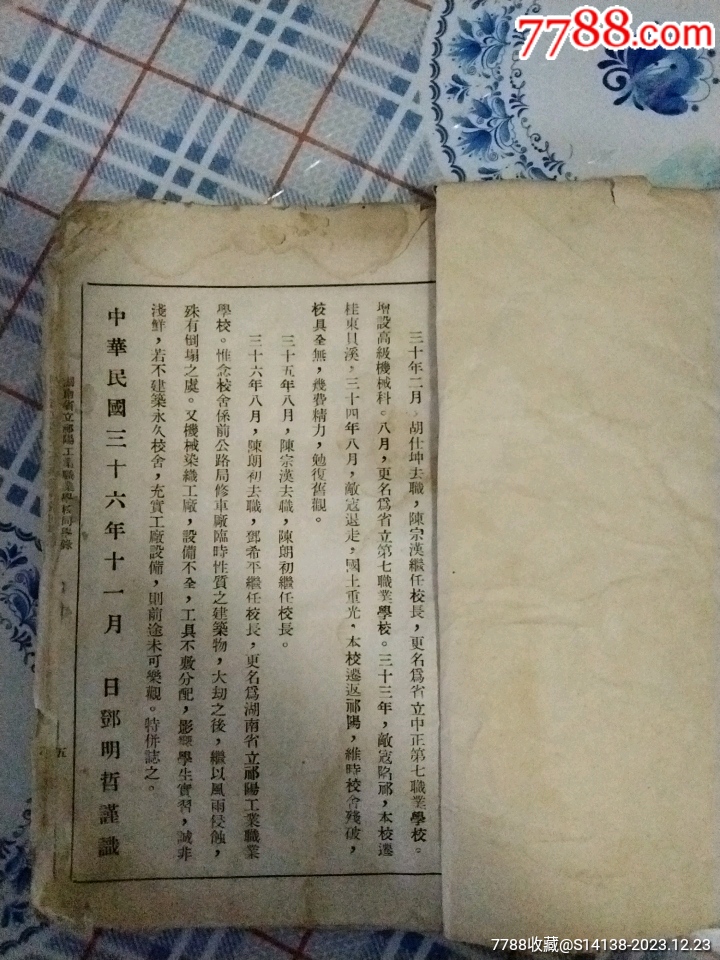 7788.com
三十年二月，胡仕坤去職，陳宗漢繼任校長，更名爲省立中正第七職業學校。
增設高級機械科。八月，更名爲省立第七職業學校。三十三年，敵寇陷祁，本校遷
桂東貝溪，三十四年八月，敵寇退走，國土重光，本校遷返祁陽，維時校舍殘破，
校具全無，幾費精力，勉復舊觀。
三十五年八月，陳宗漢去職，陳朗初繼任校長。
三十六年八月，陳朗初去職，鄧希平繼任校長，更名爲湖南省立祁陽工業職業
學校。惟念校舍係前公路局修車廠臨時性質之建築物，大刧之後，繼以風雨侵蝕，
殊有倒塌之處。又機械染織工廠，設備不全，工具不敷分配，影響學生實習，誠非
淺鮮，若不建築永久校舍，充實工廠設備，則前途未可樂觀。特併誌之。
中華民國三十六年十一月　日鄧明哲謹識
湖南省立祁陽工業職業學校同學錄
五
7788收藏@S14138-2023.12.23